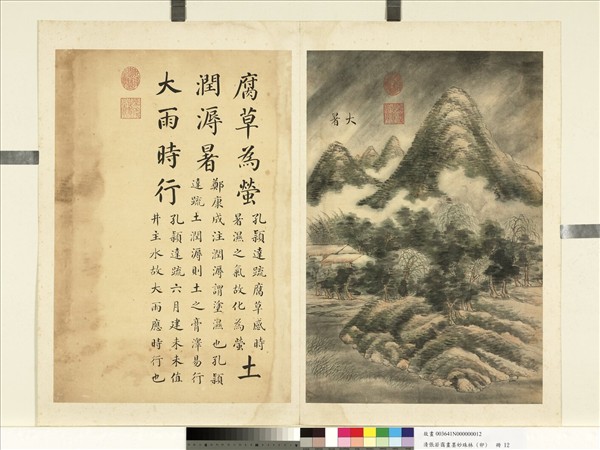 大暑
腐草為螢
孔穎達疏腐草感時
暑濕之氣故化為螢
土
潤溽暑
鄭康成注潤溽謂塗濕也孔穎
達疏土潤溽則土之膏澤易行
大雨時行
孔穎達疏六月建未未值
井主水故大雨應時行也
故畫 003641N000000012
清張若靄畫墨妙珠林（卯） 冊 12